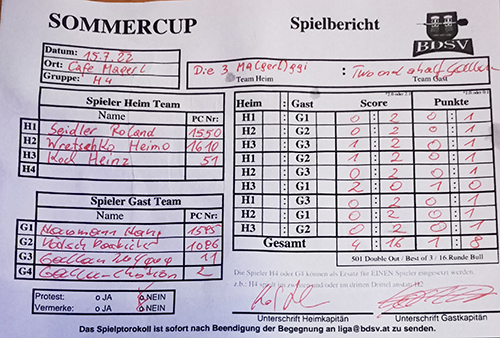 SOMMERCUP Spielbericht
BDSV
Datum: 15.7.22
Ort: Cafe Magerl
Gruppe: H4
Die 3 Team Heim : Two and a half Team Gast
Spieler Heim Team
Name PC Nr:
H1 Seidler Roland 1550
H2 Wretschko Heimo 1610
H3 Kock Heinz 51
H4
Spieler Gast Team
Name PC Nr:
G1 1595
G2 1086
G3 11
G4 2
Heim : Gast Score Punkte
H1 : G1 0 : 2 0 : 1
H2 : G2 0 : 2 0 : 1
H3 : G3 1 : 2 0 : 1
H1 : G2 1 : 2 0 : 1
H2 : G3 0 : 2 0 : 1
H3 : G1 2 : 0 1 : 0
H1 : G3 0 : 2 0 : 1
H2 : G1 0 : 2 0 : 1
H3 : G2 0 : 2 0 : 1
Gesamt 4 : 16 1 : 8
501 Double Out / Best of 3 / 16 Runde Bull
Die Spieler H4 oder G4 können als Ersatz für EINEN Spieler eingesetzt werden.
z.b.: H4 spielt im zweiten und/oder im dritten Drittel anstatt H2
Protest: o JA o NEIN
Vermerke: o JA o NEIN
Unterschrift Heimkapitän Unterschrift Gastkapitän
Das Spielprotokoll ist sofort nach Beendigung der Begegnung an liga@bdsv.at zu senden.